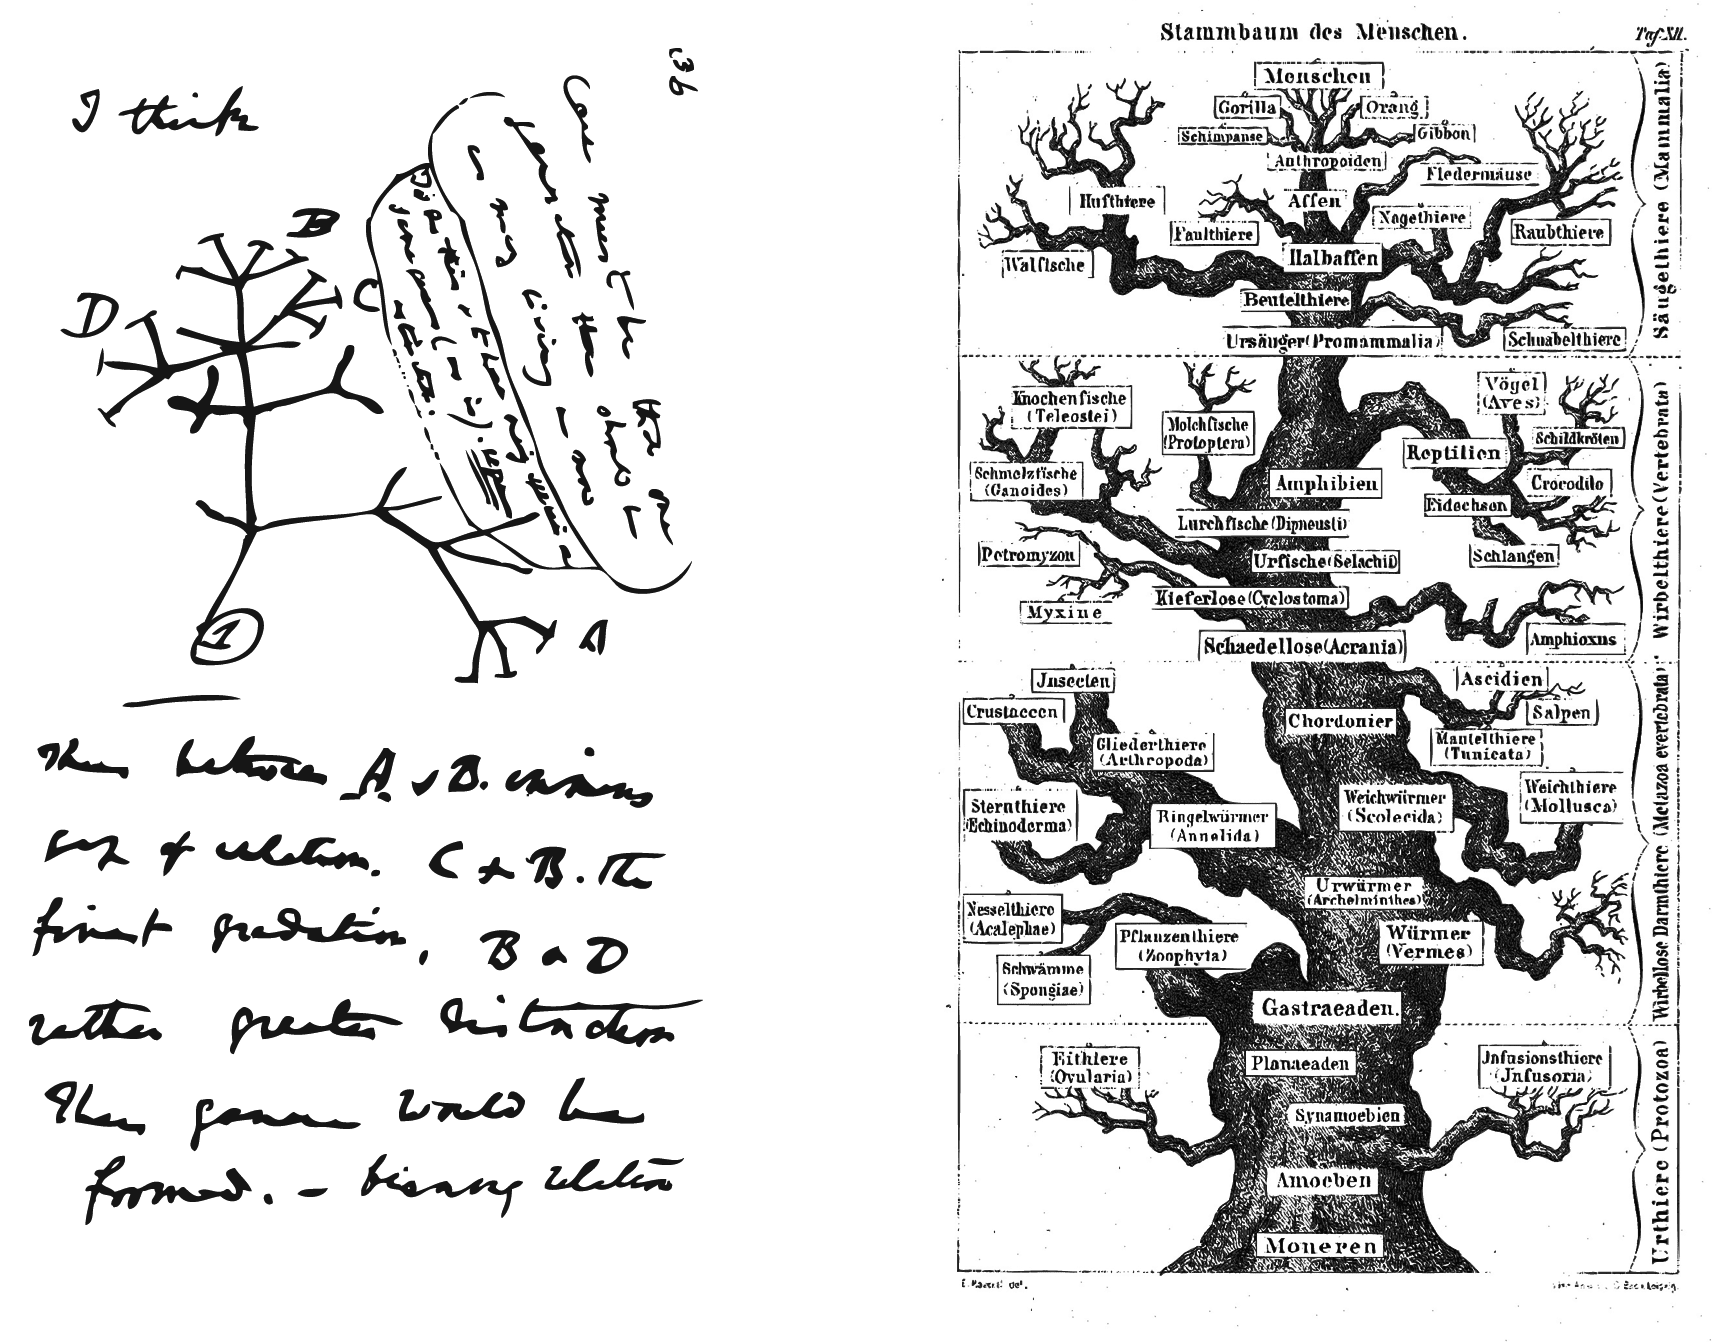 I think
B
D
C
A
1
36
Case must be that one
generation then should be
as many living as now
To do this & to have many species in
same genus (as is). requires
extinction.
Thus between A. & B. immense
gap of relation. C & B. The
finest gradation, B & D
rather greater distinction
Thus genera would be
formed. — bearing relation
Stammbaum des Menschen.
Taf. XII.
Menschen
Gorilla
Orang
Schimpanse
Gibbon
Anthropoiden
Fledermäuse
Hufthiere
Affen
Nagethiere
Faulthiere
Raubthiere
Walfische
Halbaffen
Beutelthiere
Ursäuger (Promammalia)
Schnabelthiere
Säugethiere (Mammalia)
Knochenfische
(Teleostei)
Vögel
(Aves)
Molchfische
(Protoptera)
Schildkröten
Reptilien
Schmelzfische
(Ganoides)
Amphibien
Crocodile
Eidechsen
Lurchfische (Dipneusti)
Petromyzon
Urfische (Selachii)
Schlangen
Myxine
Kieferlose (Cyclostoma)
Schaedellose (Acrania)
Amphioxus
Wirbelthiere (Vertebrata)
Jnsecten
Ascidien
Crustaceen
Chordonier
Salpen
Gliederthiere
(Arthropoda)
Mantelthiere
(Tunicata)
Sternthiere
(Echinoderma)
Ringelwürmer
(Annelida)
Weichwürmer
(Scolecida)
Weichthiere
(Mollusca)
Urwürmer
(Archelminthes)
Nesselthiere
(Acalephae)
Pflanzenthiere
(Zoophyta)
Würmer
(Vermes)
Schwämme
(Spongiae)
Gastraeaden.
Wirbellose Darmthiere (Metazoa evertebrata)
Eithiere
(Ovularia)
Planaeaden
Jnfusionsthiere
(Jnfusoria)
Synamoebien
Amoeben
Moneren
Urthiere (Protozoa)